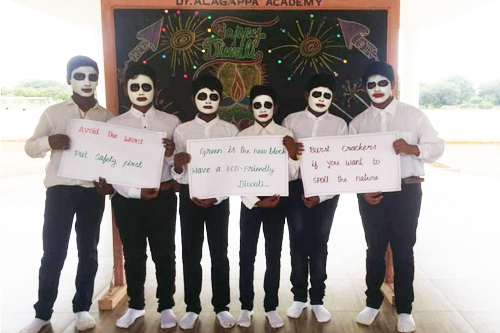 Dr. ALAGAPPA ACADEMY
Happy
Diwali
Avoid the worst
Put Safety first
Green is the new black
Have a ECO-Friendly
Diwali...
Burst Crackers
if you want to
Spoil the nature